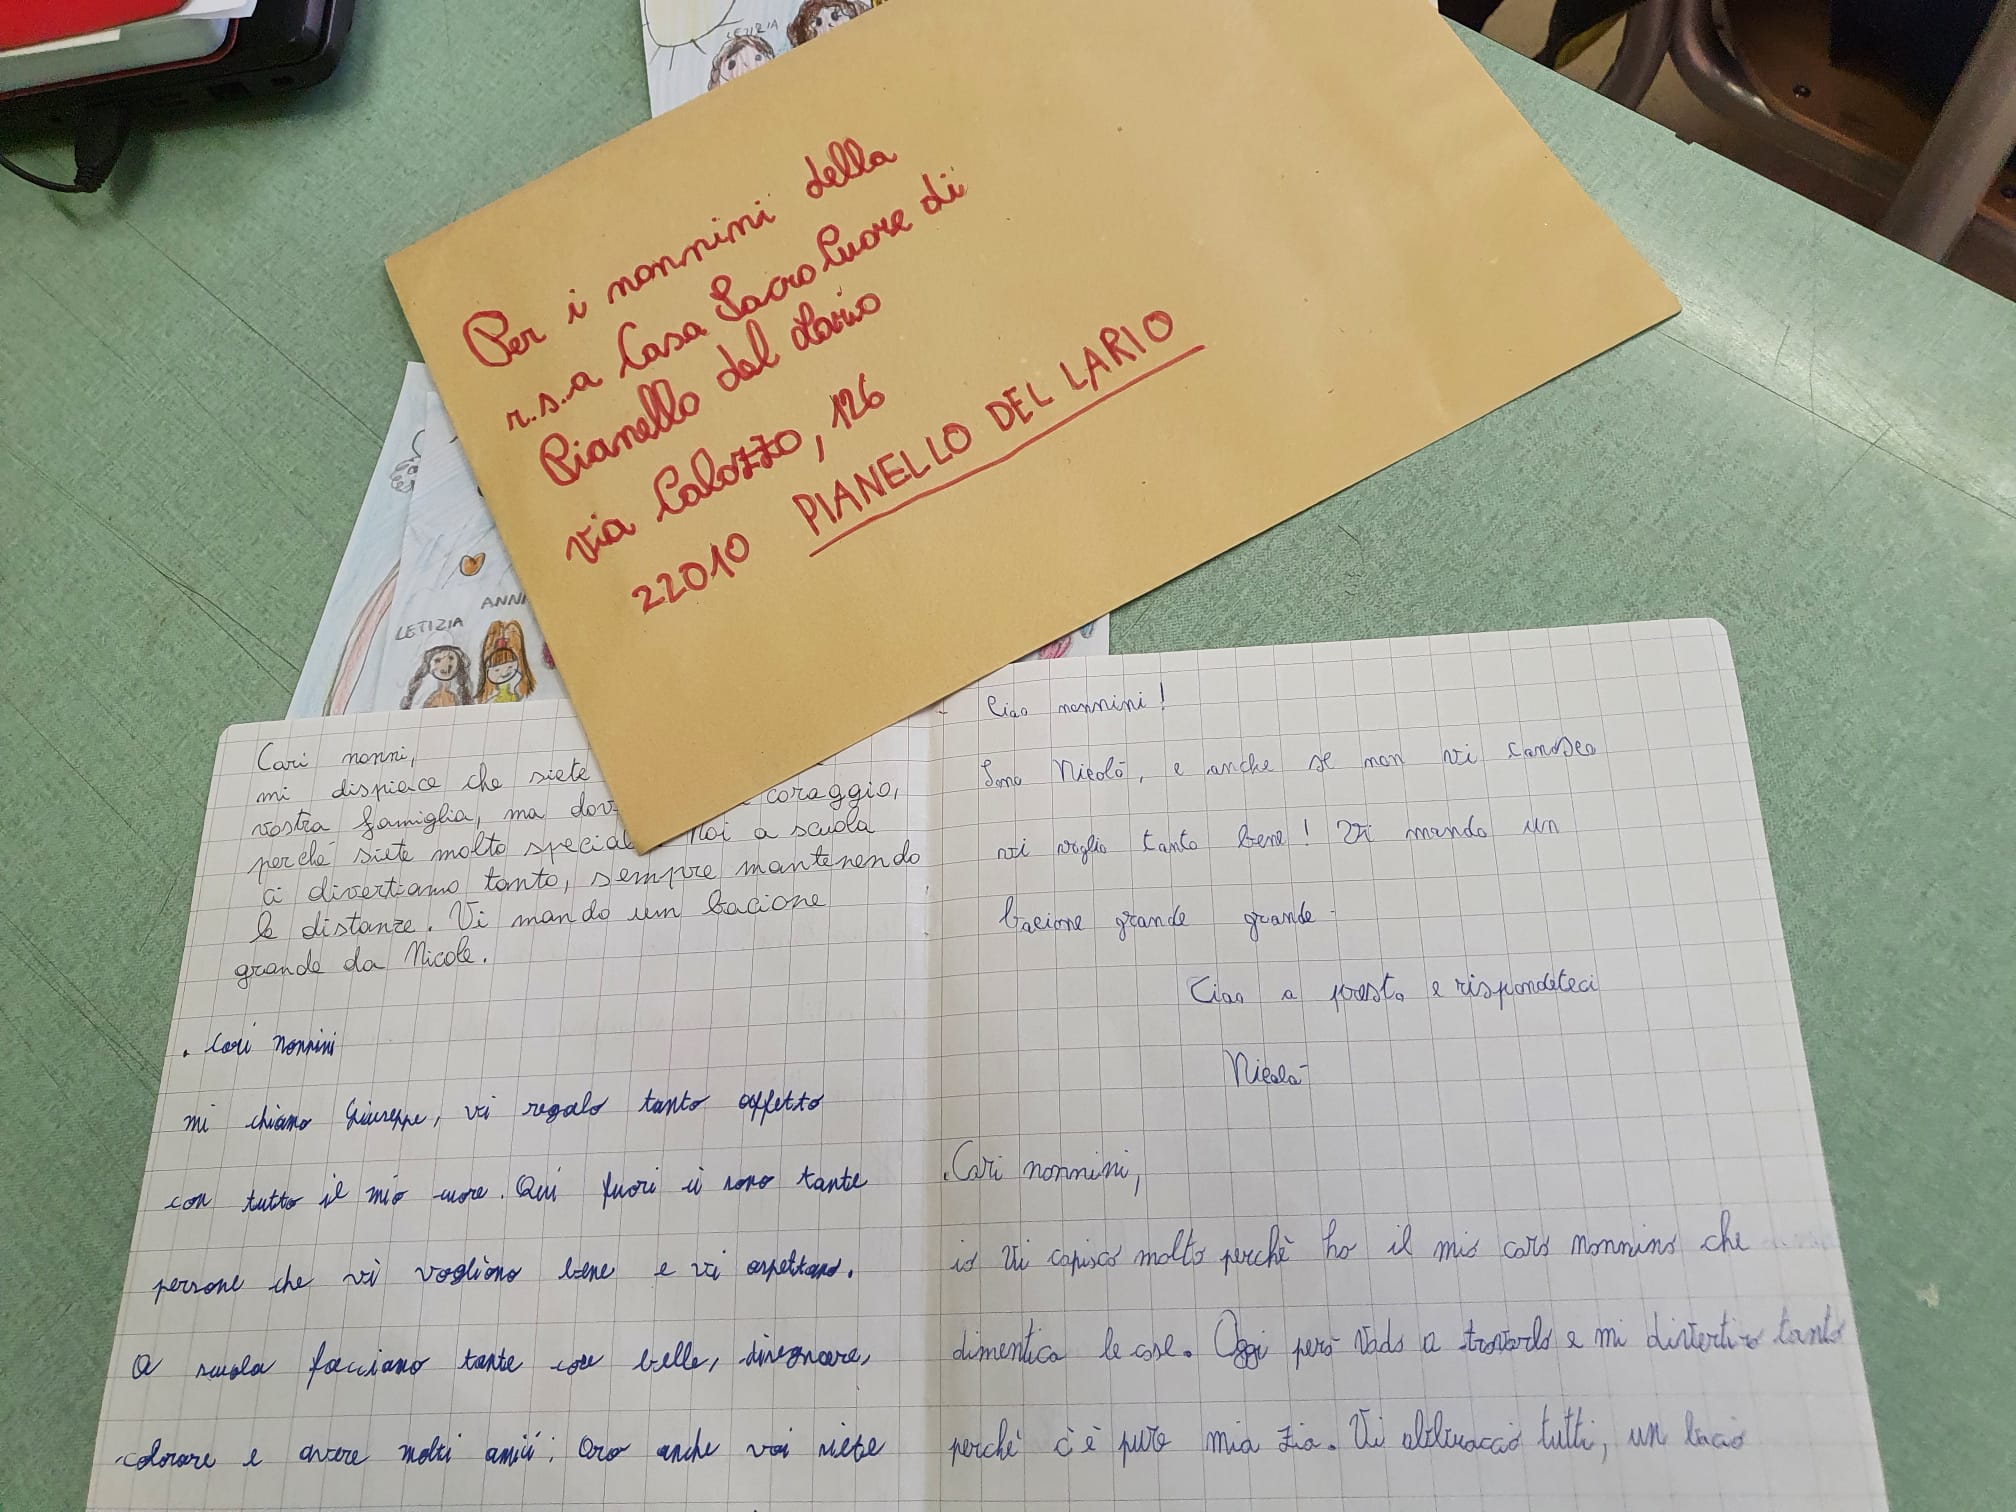 LETIZIA
Per i nonnini della
r.s.a Casa Sacro Cuore di
Pianello del Lario
via Calozzo, 126
22010 PIANELLO DEL LARIO
LETIZIA
ANN
Cari nonni,
mi dispiace che siete
vostra famiglia, ma dov coraggio,
perché siete molto special Noi a scuola
ci divertiamo tanto, sempre mantenendo
le distanze. Vi mando un bacione
grande da Nicole.
. Cari nonnini
mi chiamo Giuseppe, vi regalo tanto affetto
con tutto il mio cuore. Qui fuori ci sono tante
persone che vi vogliono bene e vi aspettano.
A scuola facciamo tante cose belle, disegnare,
colorare e avere molti amici. Ora anche voi siete
Ciao nonnini!
Sono Nicolò, e anche se non vi conosco
vi voglio tanto bene! Vi mando un
bacione grande grande
Ciao a presto e rispondeteci
Nicolò
. Cari nonnini,
io vi capisco molto perchè ho il mio caro nonnino che
dimentica le cose. Oggi però vado a trovarlo e mi divertirò tanto
perchè c'è pure mia zia. Vi abbraccio tutti, un bacio